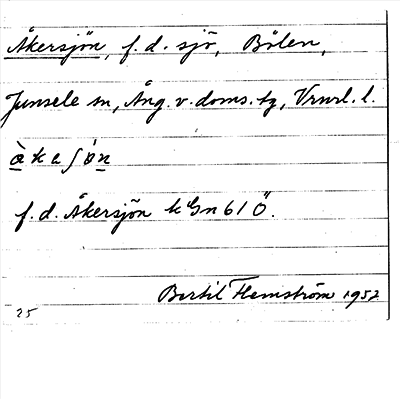 Åkersjön, f. d. sjö, Bölen,
Junsele sn, Ång. v. doms. tg, Vrnrl. l.
à k e ʃ ö́ n
f. d. Åkersjön k Gn 61 Ö.
Bertil Flemström 1952
25